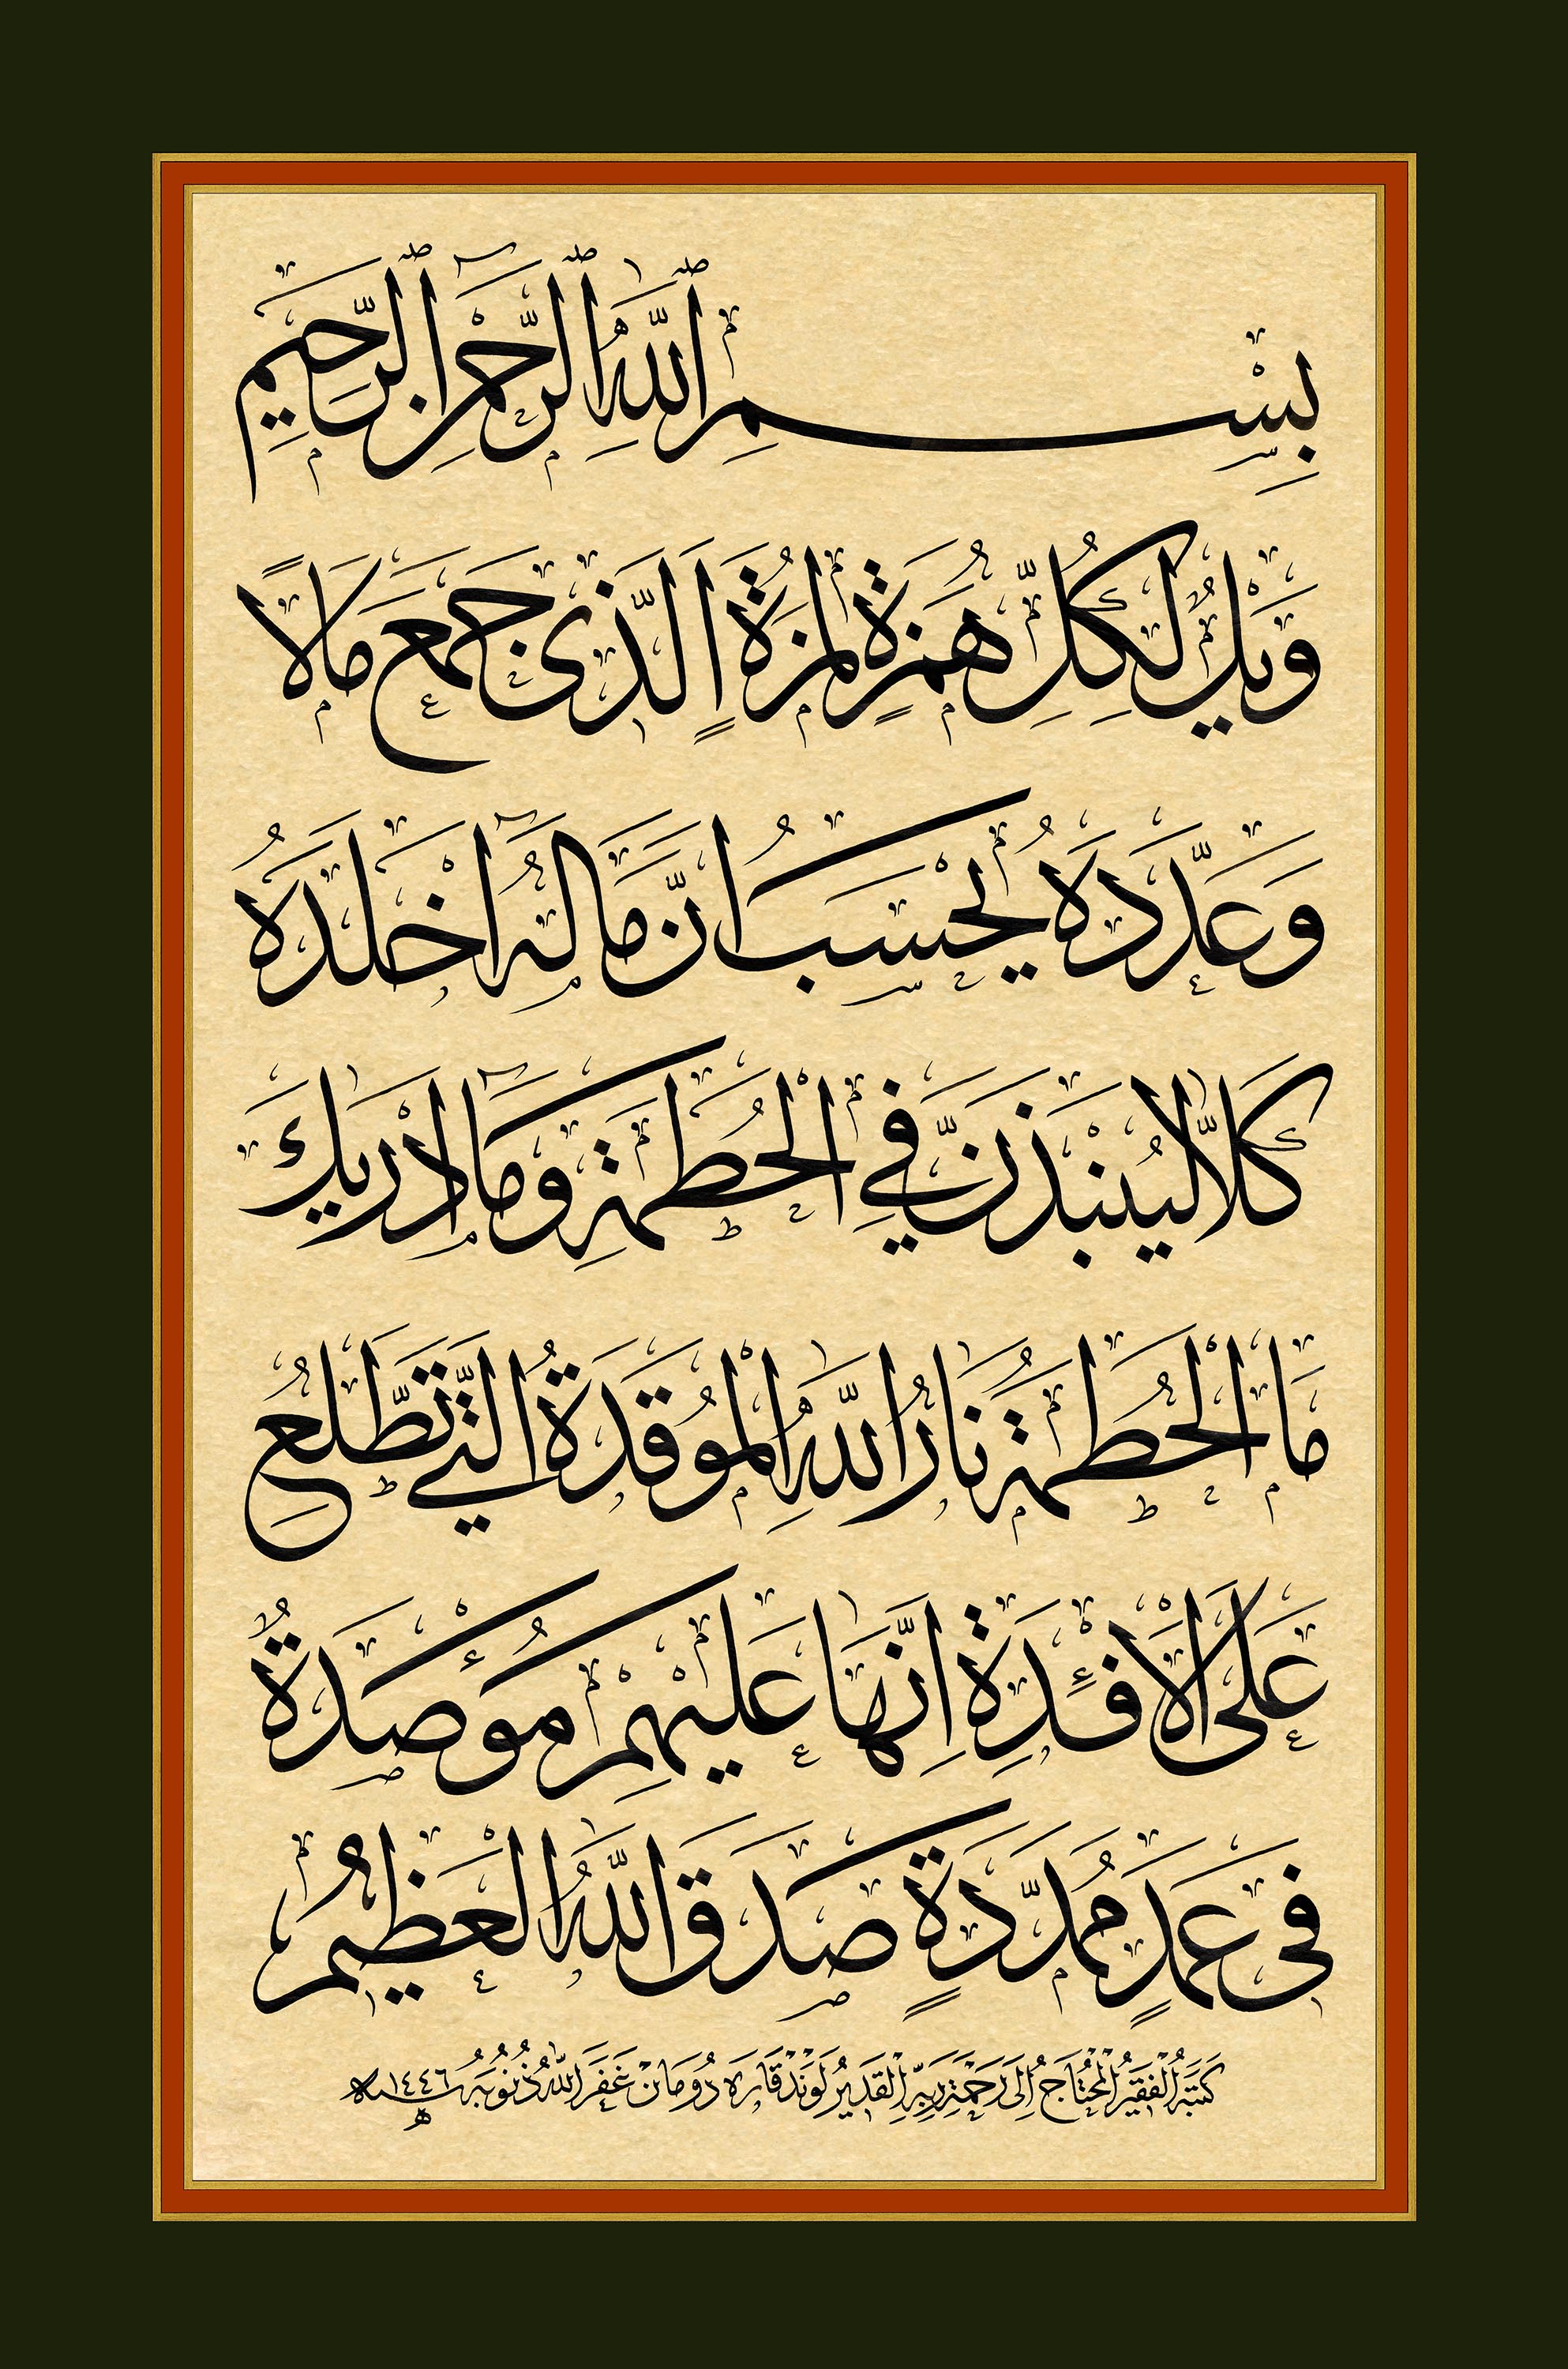 بِسْمِ اللّٰهِ الرَّحْمٰنِ الرَّحِيمِ
وَيْلٌ لِكُلِّ هُمَزَةٍ لُمَزَةٍ الَّذِى جَمَعَ مَالًا
وَعَدَّدَهُ يَحْسَبُ اَنَّ مَالَهُ اَخْلَدَهُ
كَلَّا لَيُنْبَذَنَّ فِي الْحُطَمَةِ وَمَا اَدْرٰيكَ
مَا الْحُطَمَةُ نَارُ اللّٰهِ الْمُوقَدَةُ الَّتِي تَطَّلِعُ
عَلَى الْاَفْـِٔدَةِ اِنَّهَا عَلَيْهِمْ مُؤْصَدَةٌ
فِى عَمَدٍ مُمَدَّدَةٍ صَدَقَ اللّٰهُ الْعَظِيمُ
كَتَبَهُ الْفَقِيرُ الْمُحْتَاجُ اِلَى رَحْمَةِ رَبِّهِ الْقَدِيرِ لَوَنْدْ قَارَه دُومَانْ غَفَرَ اللّٰهُ ذُنُوبَهُ سنة ١٤٤٦ هـ